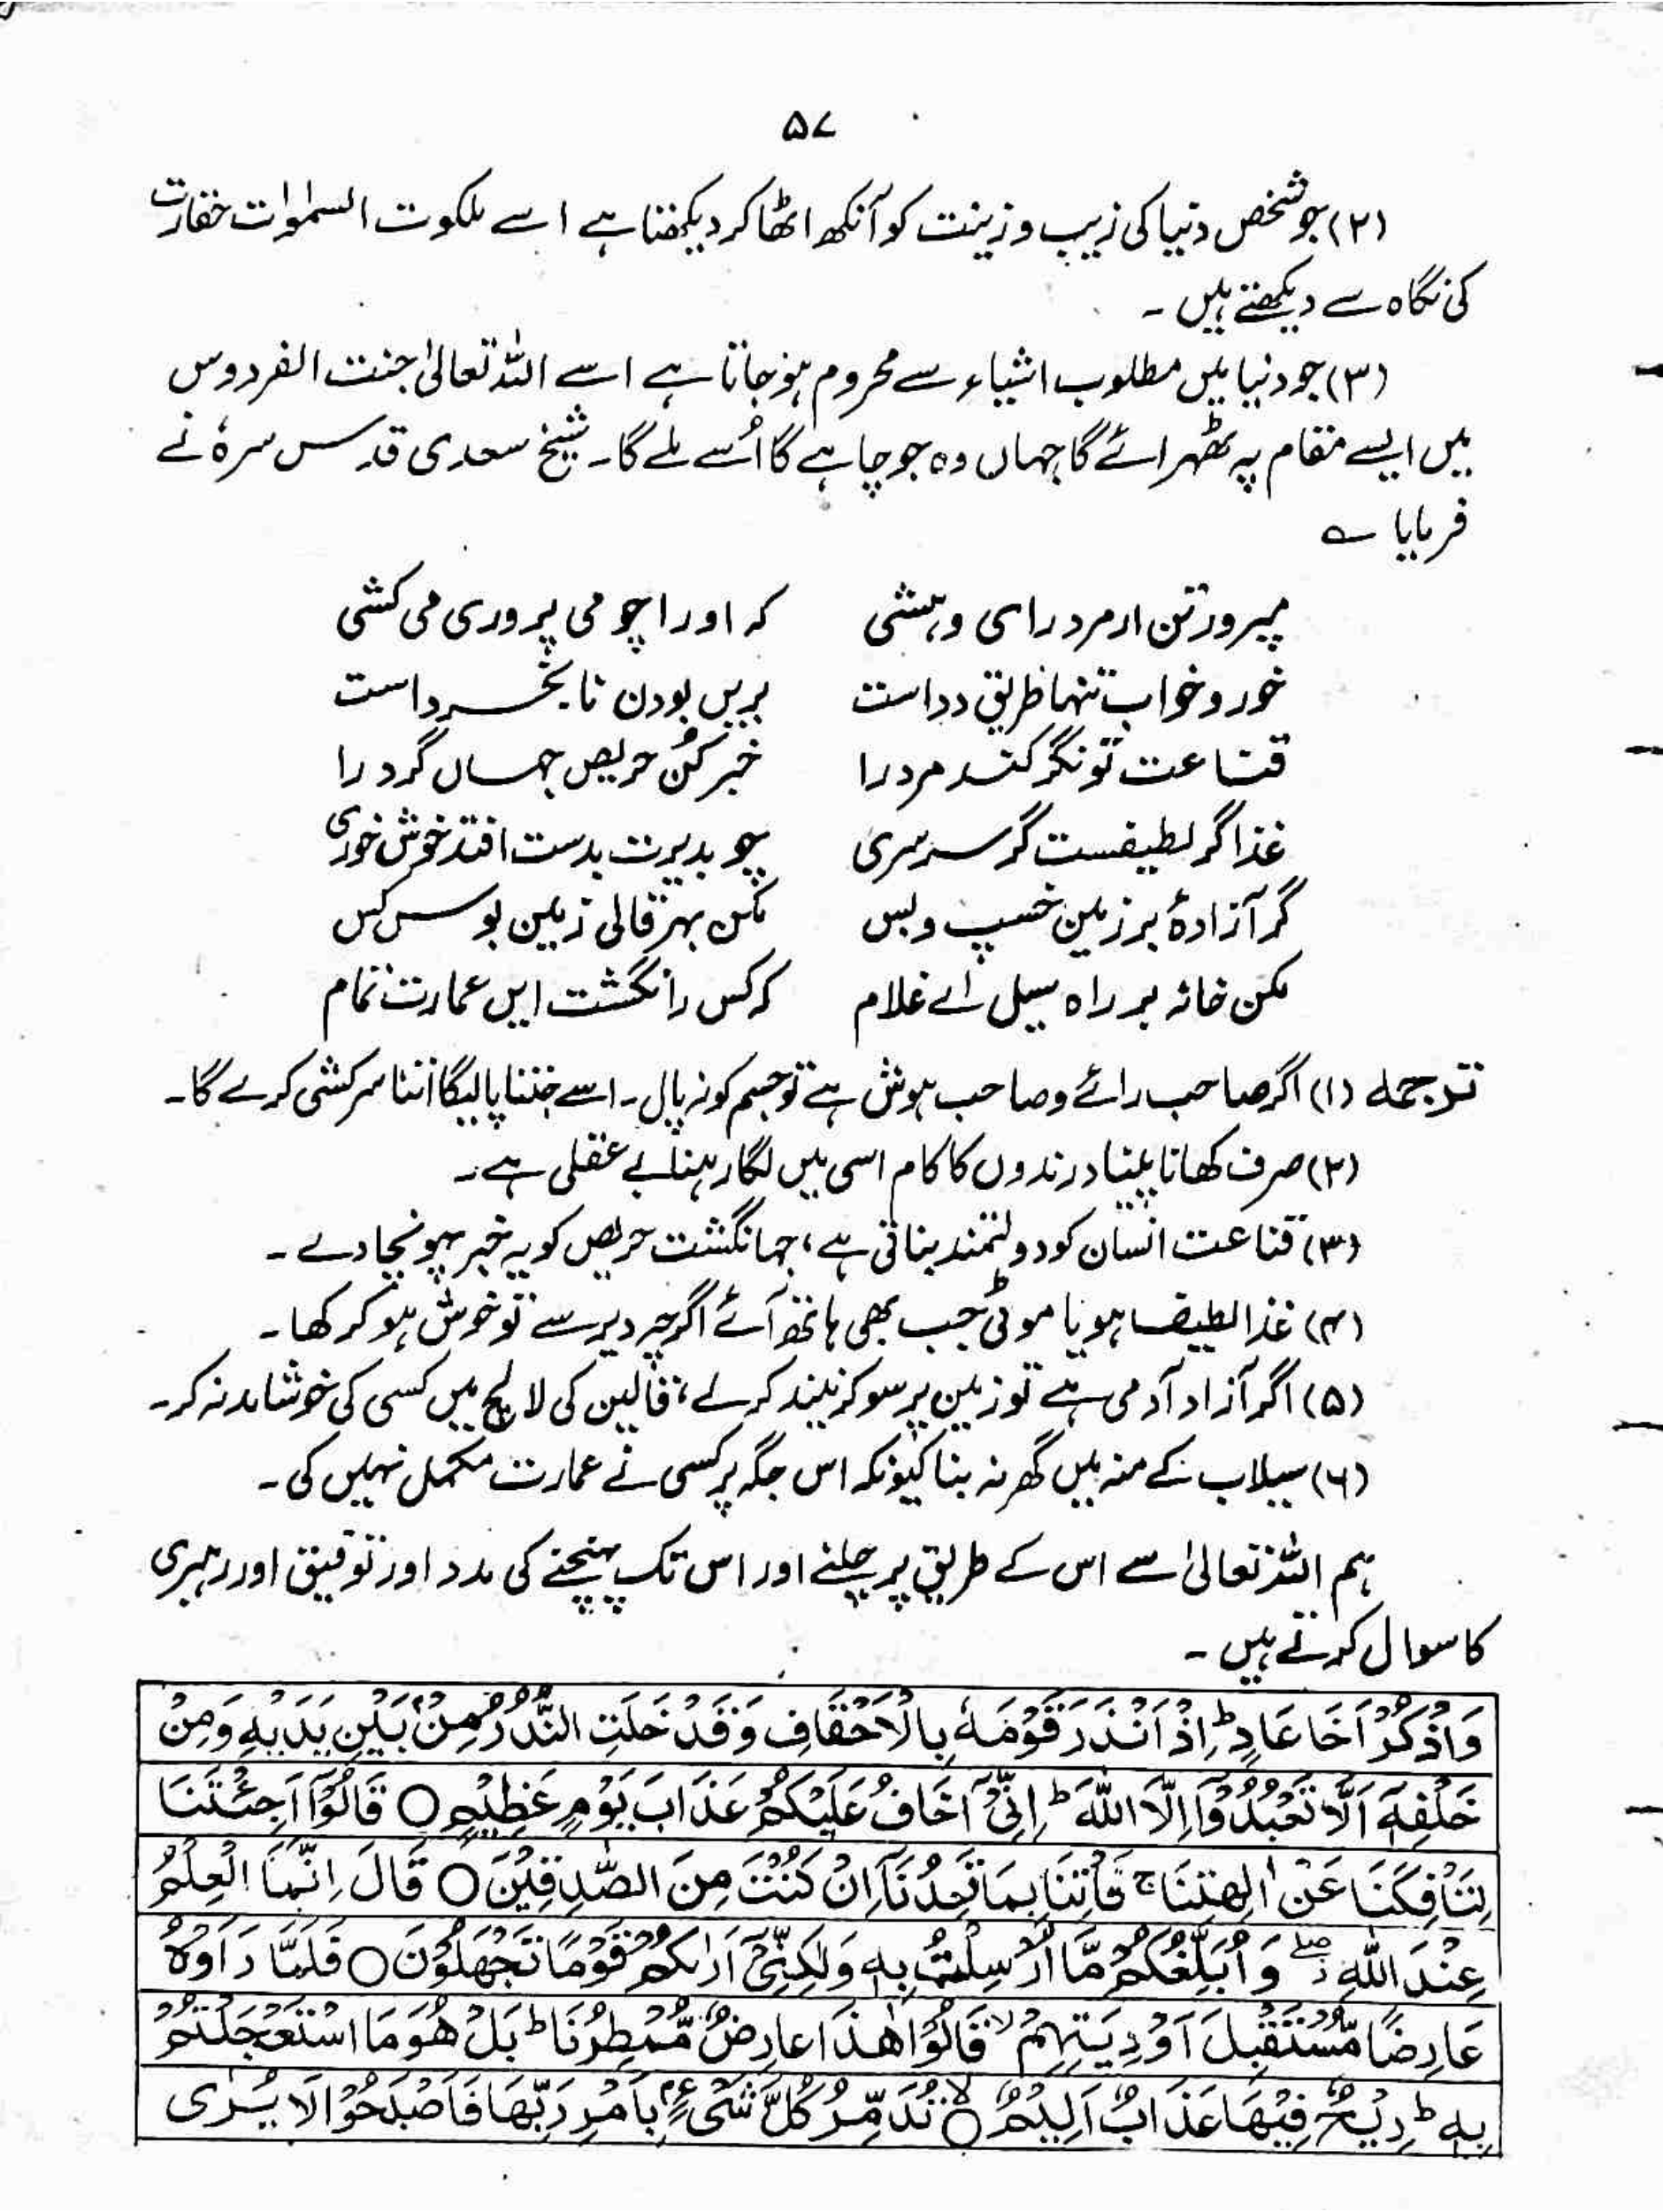 ۵۷
(۲) جو شخص دنیا کی زیب و زینت کو آنکھ اٹھا کر دیکھتا ہے اسے ملکوت السمٰوات حقارت
کی نگاہ سے دیکھتے ہیں ۔
(۳) جو دنیا میں مطلوب اشیاء سے محروم ہو جاتا ہے اسے اللہ تعالیٰ جنت الفردوس
میں ایسے مقام پہ ٹھہرائے گا جہاں وہ جو چاہے گا اُسے ملے گا۔ شیخ سعدی قدس سرہٗ نے
فرمایا ؎
مپرور تن ار مرد رای و ہشی کہ اورا چو می پروری می کشی
خور و خواب تنہا طریق دداست بریں بودن نابخرداست
قناعت تونگر کند مرد را خبر کُن حریص جہاں گرد را
غذا گر لطیفست گر سرسری چو بدیرت بدست افتد خوش خوری
گر آزادۂ بر زمین خسپ و بس مکن بہر قالی زمین بوس کس
مکن خانہ بر راہ سیل اے غلام کہ کس را نگشت ایں عمارت تمام
ترجمہ (۱) اگر صاحب رائے و صاحب ہوش ہے تو جسم کو نہ پال۔ اسے جتنا پالیگا اُتنا سرکشی کرے گا۔
(۲) صرف کھانا پینا درندوں کا کام اسی میں لگا رہنا بے عقلی ہے۔
(۳) قناعت انسان کو دولتمند بناتی ہے، جہانگشت حریص کو یہ خبر پہونچا دے ۔
(۴) غذا لطیف ہو یا موٹی جب بھی ہاتھ آئے اگرچہ دیر سے تو خوش ہو کر کھا ۔
(۵) اگر آزاد آدمی ہے تو زمین پر سو کر نیند کر لے، قالین کی لالچ میں کسی کی خوشامد نہ کر۔
(۶) سیلاب کے منہ میں گھر نہ بنا کیونکہ اس جگہ پر کسی نے عمارت مکمل نہیں کی ۔
ہم اللہ تعالیٰ سے اس کے طریق پر چلنے اور اس تک پہنچنے کی مدد اور توفیق اور رہبری
کا سوال کرتے ہیں ۔
وَاذْكُرْ اَخَا عَادٍ ؕ اِذْ اَنْذَرَ قَوْمَهٗ بِالْاَحْقَافِ وَقَدْ خَلَتِ النُّذُرُ مِنْۢ بَيْنِ يَدَيْهِ وَمِنْ
خَلْفِهٖۤ اَلَّا تَعْبُدُوْۤا اِلَّا اللهَ ؕ اِنِّیْۤ اَخَافُ عَلَيْكُمْ عَذَابَ يَوْمٍ عَظِيْمٍ ○ قَالُوْۤا اَجِئْتَنَا
لِتَاْفِكَنَا عَنْ اٰلِهَتِنَا ۚ فَاْتِنَا بِمَا تَعِدُنَاۤ اِنْ كُنْتَ مِنَ الصّٰدِقِيْنَ ○ قَالَ اِنَّمَا الْعِلْمُ
عِنْدَ اللهِ ۖ وَاُبَلِّغُكُمْ مَّاۤ اُرْسِلْتُ بِهٖ وَلٰكِنِّیْۤ اَرٰىكُمْ قَوْمًا تَجْهَلُوْنَ ○ فَلَمَّا رَاَوْهُ
عَارِضًا مُّسْتَقْبِلَ اَوْدِيَتِهِمْ ۙ قَالُوْا هٰذَا عَارِضٌ مُّمْطِرُنَا ؕ بَلْ هُوَ مَا اسْتَعْجَلْتُمْ
بِهٖ ؕ رِيْحٌ فِيْهَا عَذَابٌ اَلِيْمٌ ○ ۙ تُدَمِّرُ كُلَّ شَیْءٍۭ بِاَمْرِ رَبِّهَا فَاَصْبَحُوْا لَا يُرٰۤى